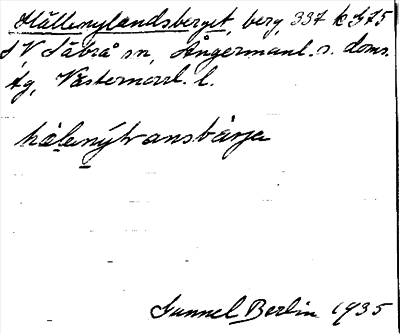 Hällenylandsberget, berg, 337 k J75
SV Säbrå sn, Ångermanl. s. doms.
tg, Västernorrl. l.
hälenýlransbärje
Gunnel Berlin 1935